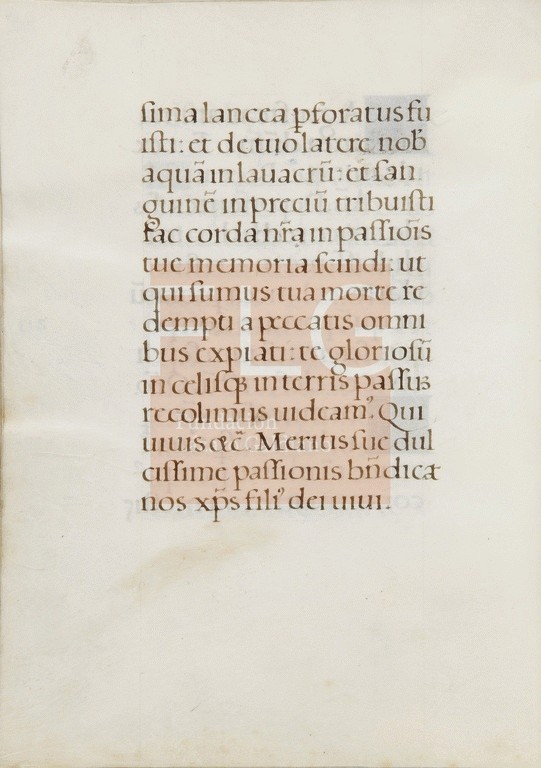 sima lancea ꝑforatus fu
isti: et de tuo latere nob̄
aquā in lauacrū: et san
guinē in preciū tribuisti
fac corda nr̄a in passiōīs
tue memoria scindi: ut
qui sumus tua morte re
dempti a peccatis omni
bus expiati: te gloriosū
in celisqꝫ in terris passuꝫ
recolimus uideamꝰ. Qui
uiuis &c̄. Meritis sue dul
cissime passionis bn̄dicat
nos xp̄s filiꝰ dei uiui.
FLG
Fundación